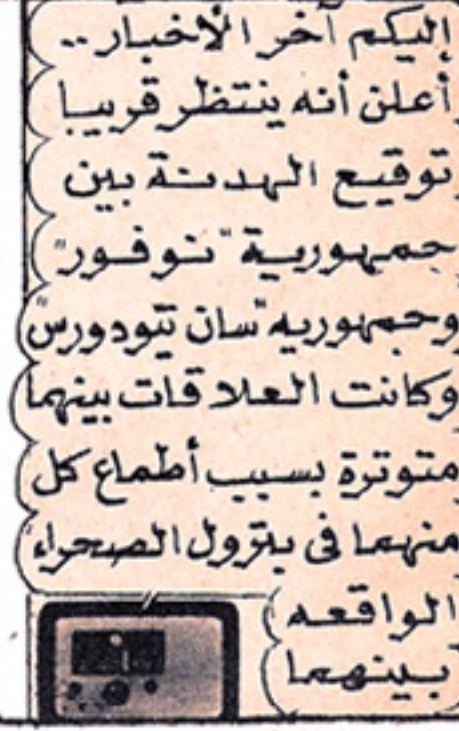 إليكم آخر الأخبار..
أعلن أنه ينتظر قريبا
توقيع الهدنة بين
جمهورية "نوفور"
وجمهوريه "سان تيودورس"
وكانت العلاقات بينهما
متوترة بسبب أطماع كل
منهما فى بترول الصحراء
الواقعه
بينهما